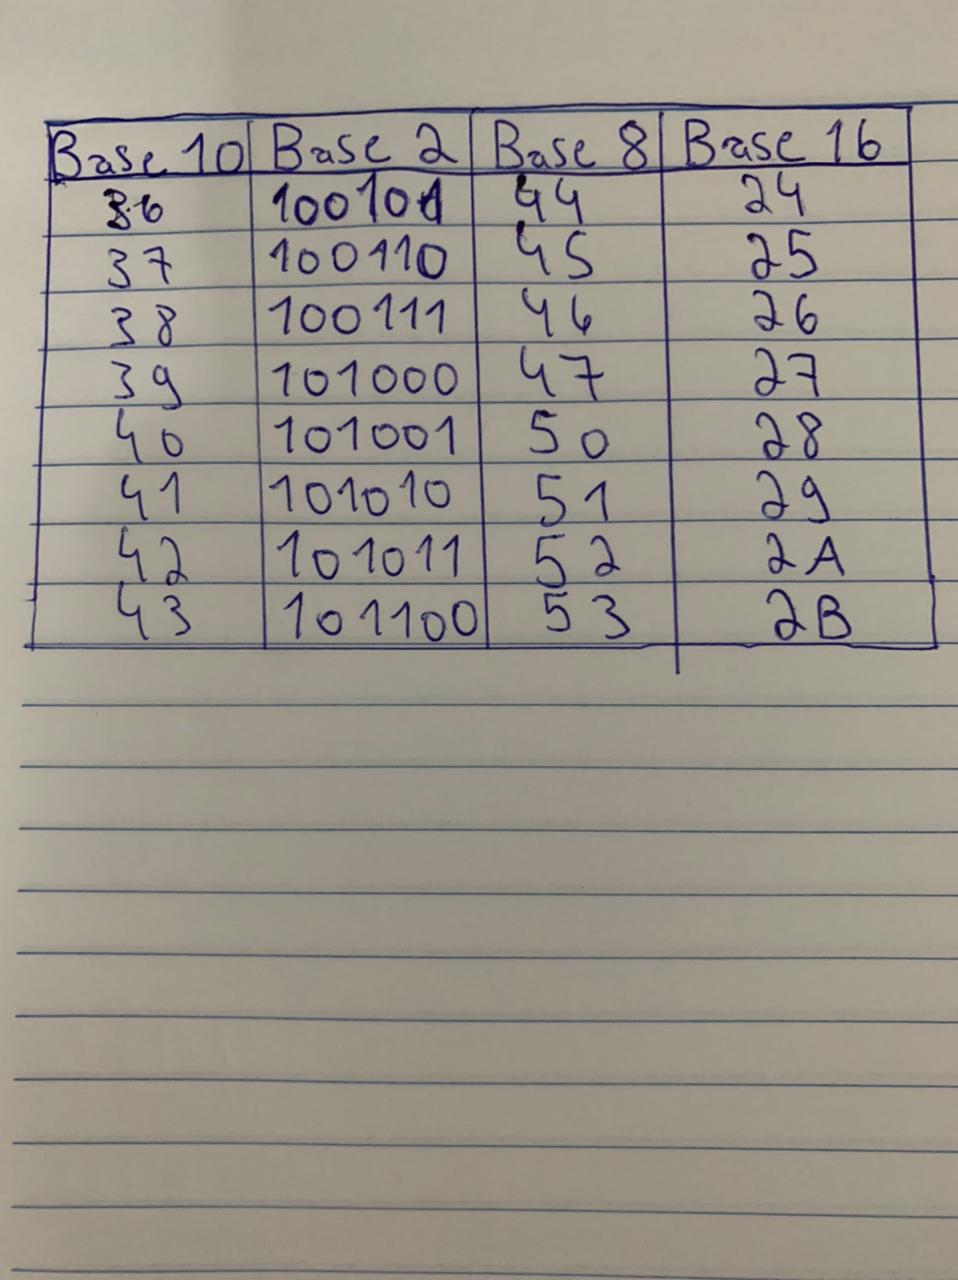 Base 10 Base 2 Base 8 Base 16
36 100101 44 24
37 100110 45 25
38 100111 46 26
39 101000 47 27
40 101001 50 28
41 101010 51 29
42 101011 52 2A
43 101100 53 2B